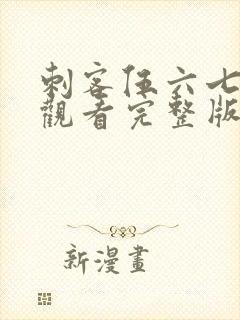 刺客伍六七
觀看完整版
新漫畫